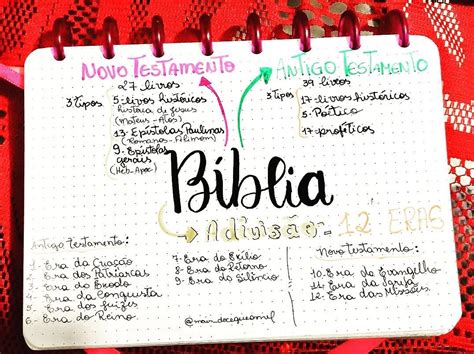 NOVO TESTAMENTO
27 livros
3 tipos
5- livros históricos
história de Jesus
(Mateus - Atos)
13- Epístolas Paulinas
(Romanos - Filemom)
9- Epístolas
gerais
(Heb - Apoc)
ANTIGO TESTAMENTO
39 livros
3 tipos
17- livros históricos
5- Poético
17- proféticos
Bíblia
A divisão - 12 ERAS
Antigo testamento:
1- Era da Criação
2- Era dos Patriarcas
3- Era do Êxodo
4- Era da Conquista
5- Era dos Juízes
6- Era do Reino
7- Era do Exílio
8- Era do Retorno
9- Era do Silêncio
Novo testamento:
10. Era do Evangelho
11- Era da Igreja
12. Era das Missões